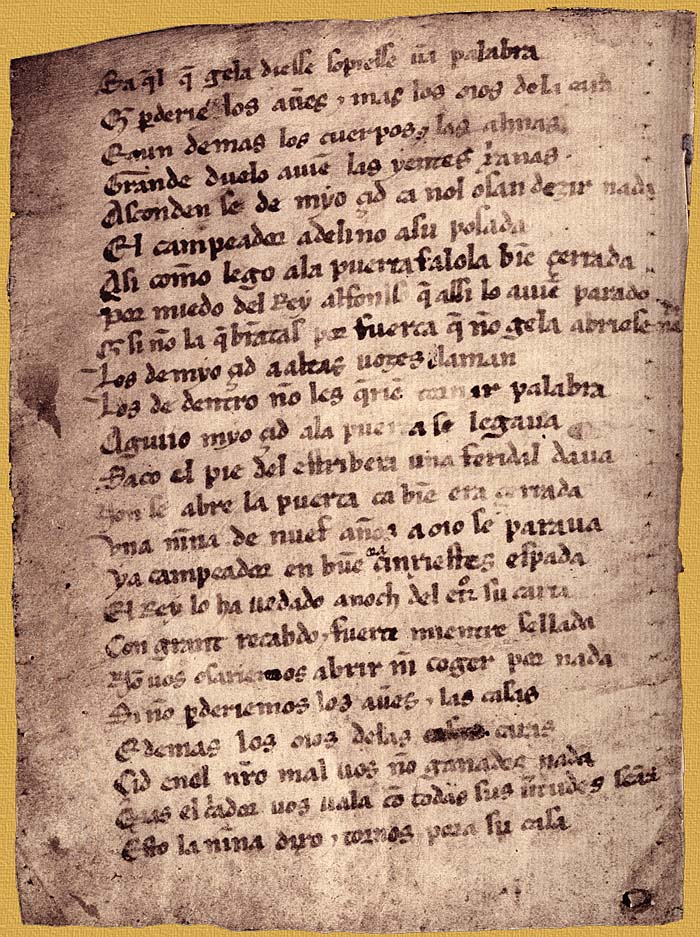 Ea q̃l q̃ gela diesse sopiesse ũa palabra
Q̃ ꝑderie los aũes ⁊ mas los oios de la cara
E aun demas los cuerpos ⁊ las almas
Grande duelo auiẽ las yentes xp̃anas
Asconden se de myo çid ca nol osan dezir nada
El campeador adelino asu posada
Asi com̃o lego ala puerta falola biẽ çerrada
Por miedo del Rey alfonsso q̃ assi lo auiẽ parado
Q̃ si ño la q̃brãtas por fuerça q̃ ño gela abriese
Los de myo çid a altas uozes laman
Los de dentro ño les q̃riẽ tornar palabra
Aguiio myo çid ala puerta se legaua
Saco el pie del estribera una feridal daua
Non se abre la puerta ca biẽ era çerrada
Vna niña de nuef años a oio se paraua
ya campeador en buẽ ora çinxiestes espada
El Rey lo ha uedado anoch del etro su carta
Con grant recabdo ⁊ fuerte mientre sellada
Non uos osariemos abrir nĩ coger por nada
Si ño ꝑderiemos los aũes ⁊ las casas
E demas los oios delas caras
Çid enel nr̃o mal uos ño ganades nada
Mas el c̃ador uos uala cõ todas sus ũtudes
Esto la niña dixo ⁊ tornos pora su casa